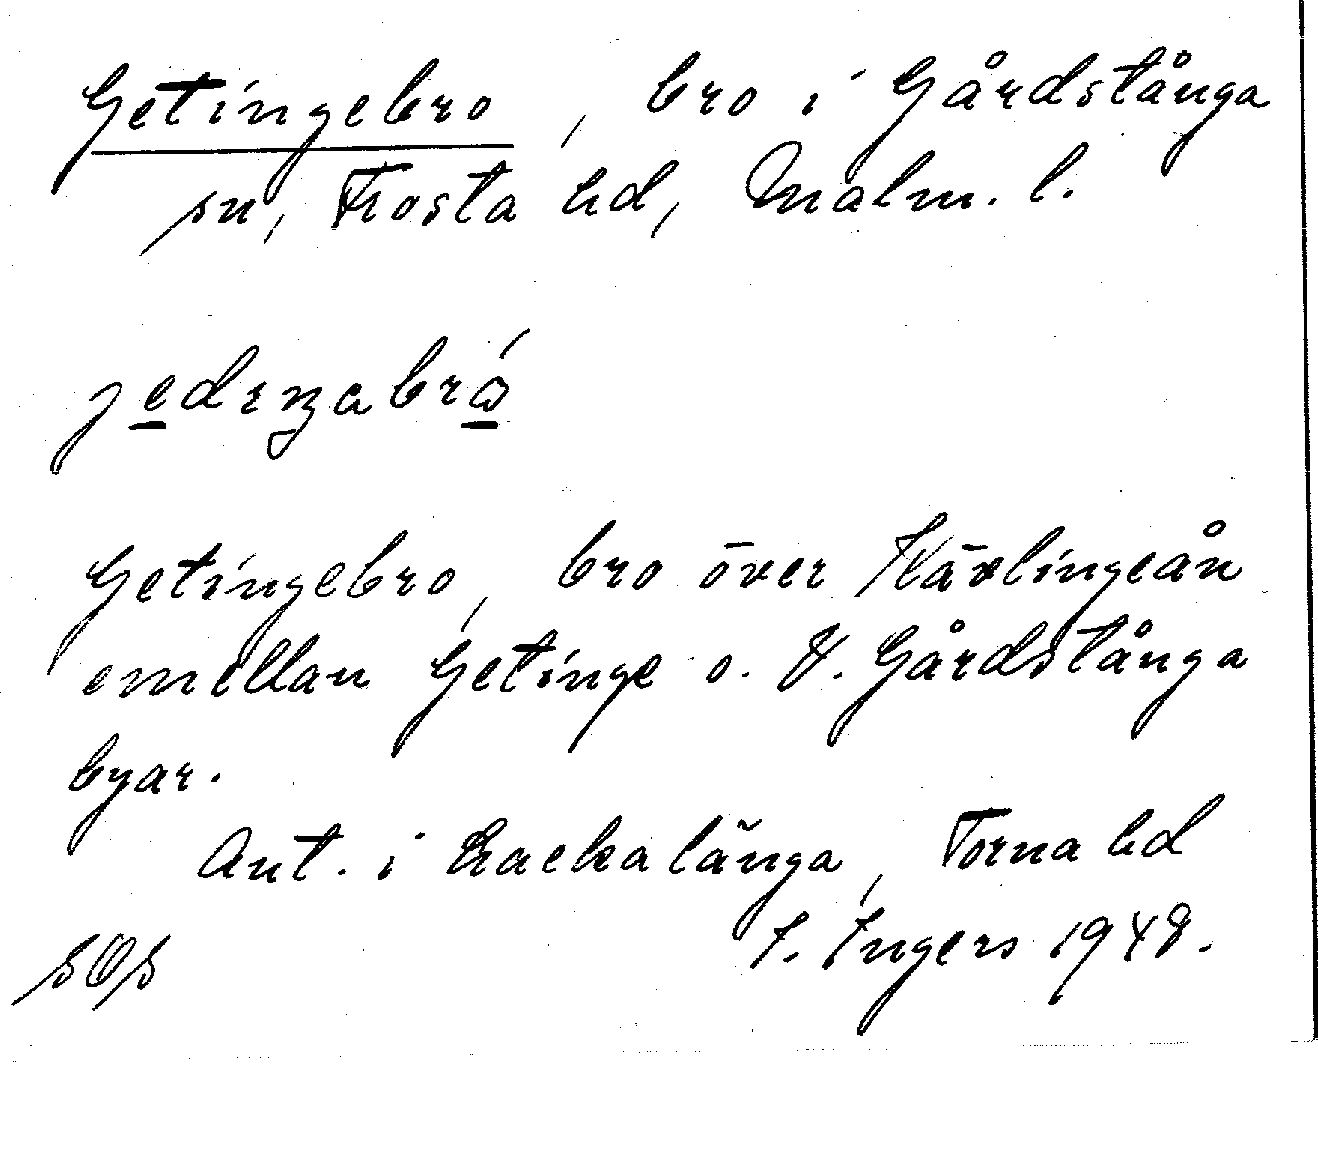 Getingebro, bro i Gårdstånga
sn, Frosta hd, Malm. l.
Getingebro, bro över Kävlingeån
emellan Getinge o. V. Gårdstånga
byar.
Ant. i Hackalänga, Torna hd
I. Ingers 1948.